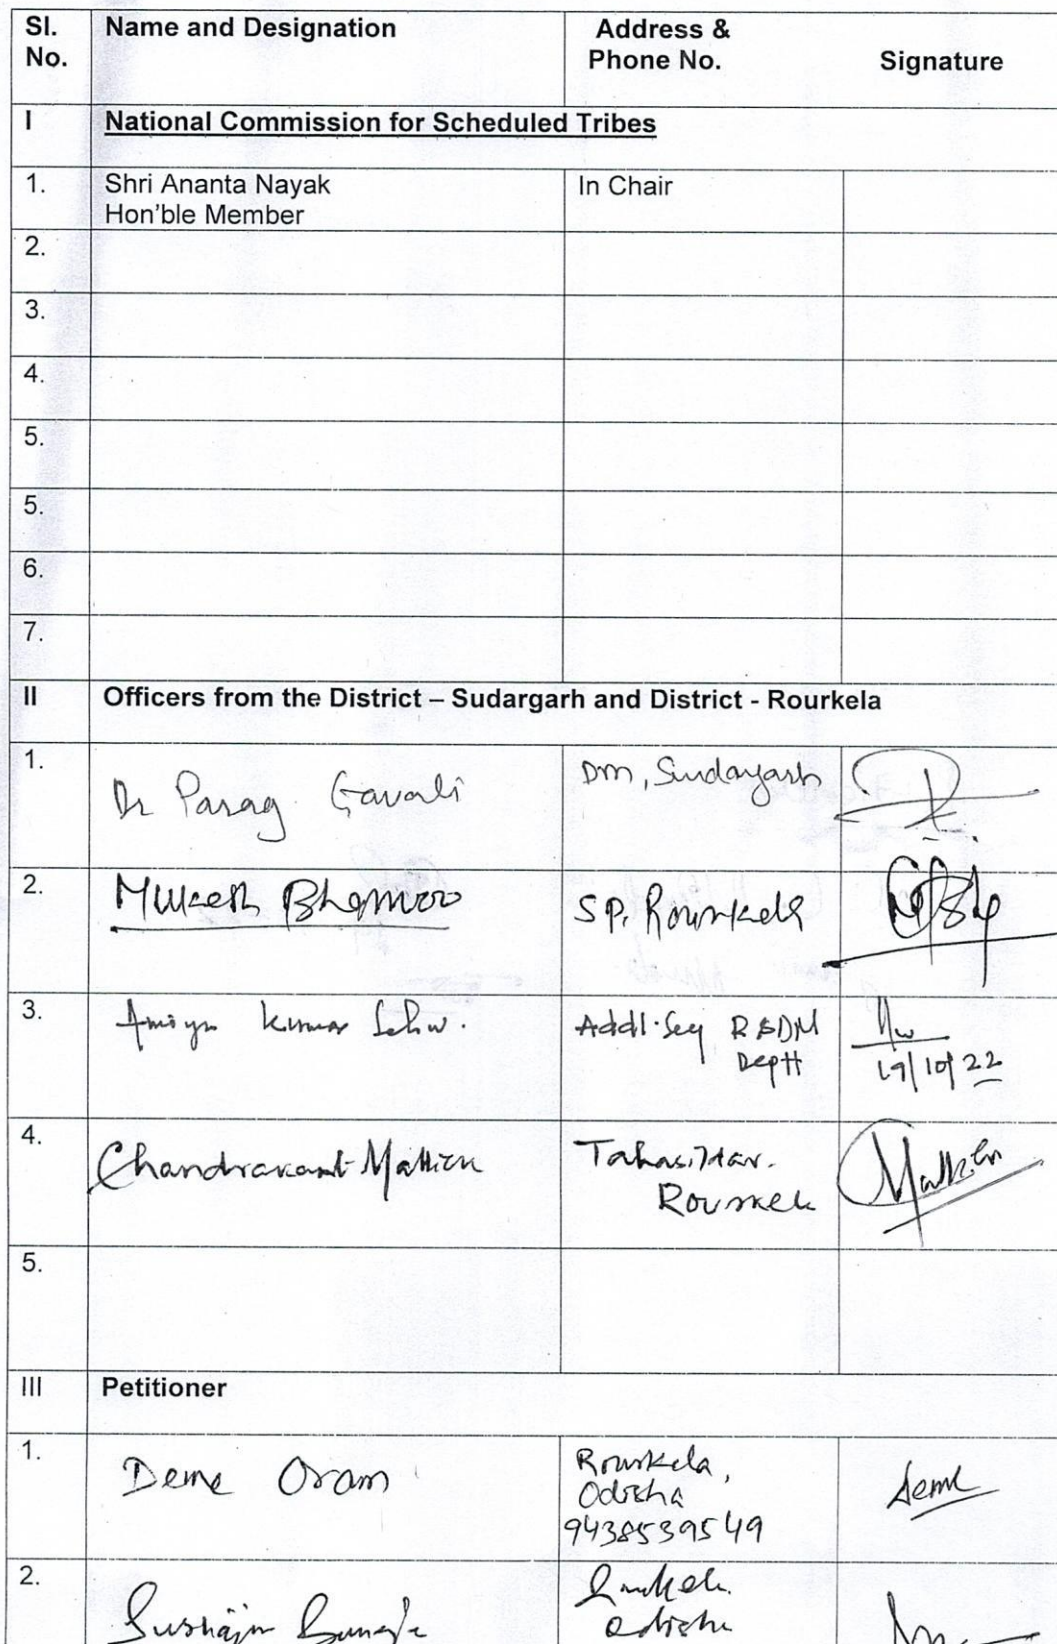 Sl. No. Name and Designation Address & Phone No. Signature
I National Commission for Scheduled Tribes
1. Shri Ananta Nayak In Chair
Hon'ble Member
2.
3.
4.
5.
5.
6.
7.
II Officers from the District – Sudargarh and District - Rourkela
1. Dr Parag Gavali DM, Sundargarh
2. Mukesh Bhamoo SP, Rourkela
3. Amiya Kumar Sahu. Addl. Secy R&DM
Deptt
19/10/22
4. Chandrakant Mallick Tahasildar.
Rourkela
5.
III Petitioner
1. Deme Oram Rourkela,
Odisha
9438539549 Deme
2. Rourkela
Odisha